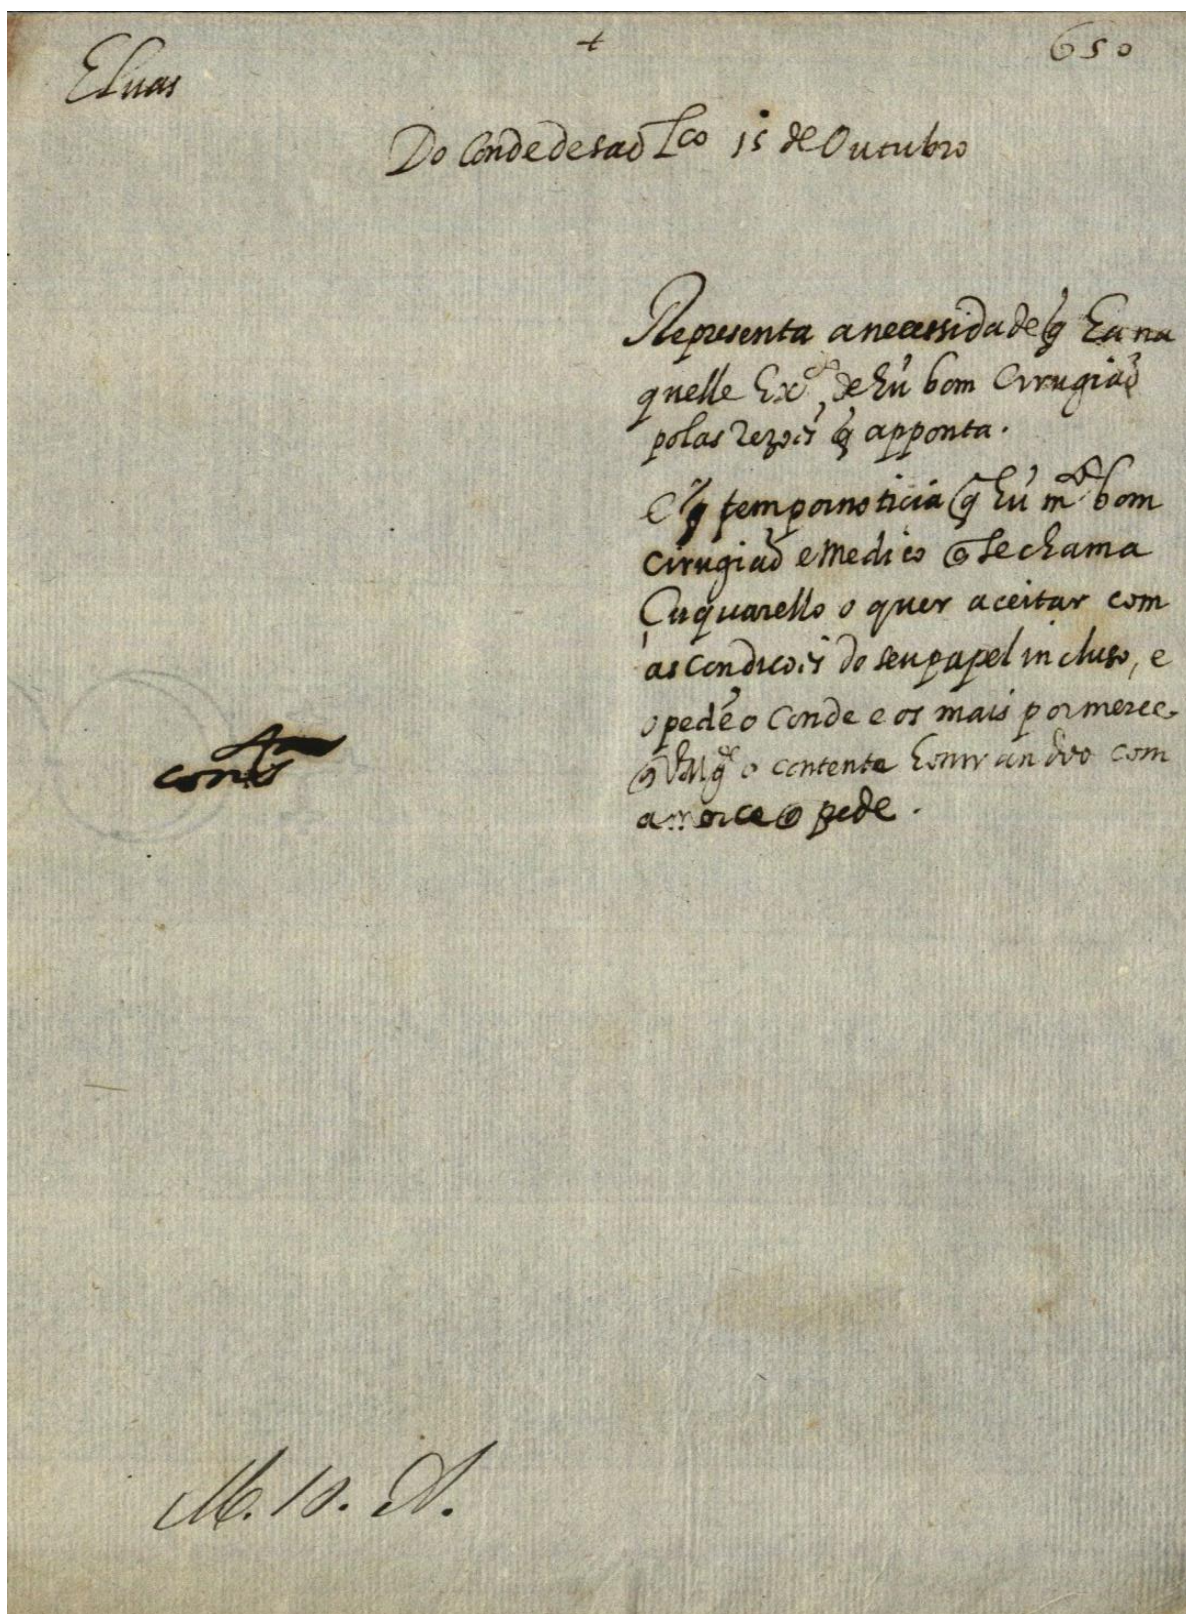 +
650
Eluas
Do Conde de saõ Lco 15 de Outubro
Representa a necessidade q̃ ha na
quelle Exto de hũ bom Cirugiaõ
polas rezois q̃ apponta.
E q̃ tem por noticia q̃ hũ mto bom
cirugiaõ e Medico q̃ se chama
Cuquarello o quer aceitar com
as condicois do seu papel incluso, e
o pedẽ o Conde e os mais por merce
q̃ VMgde o contente honrandoo com
a merce q̃ pede.
conta
M. 10. A.